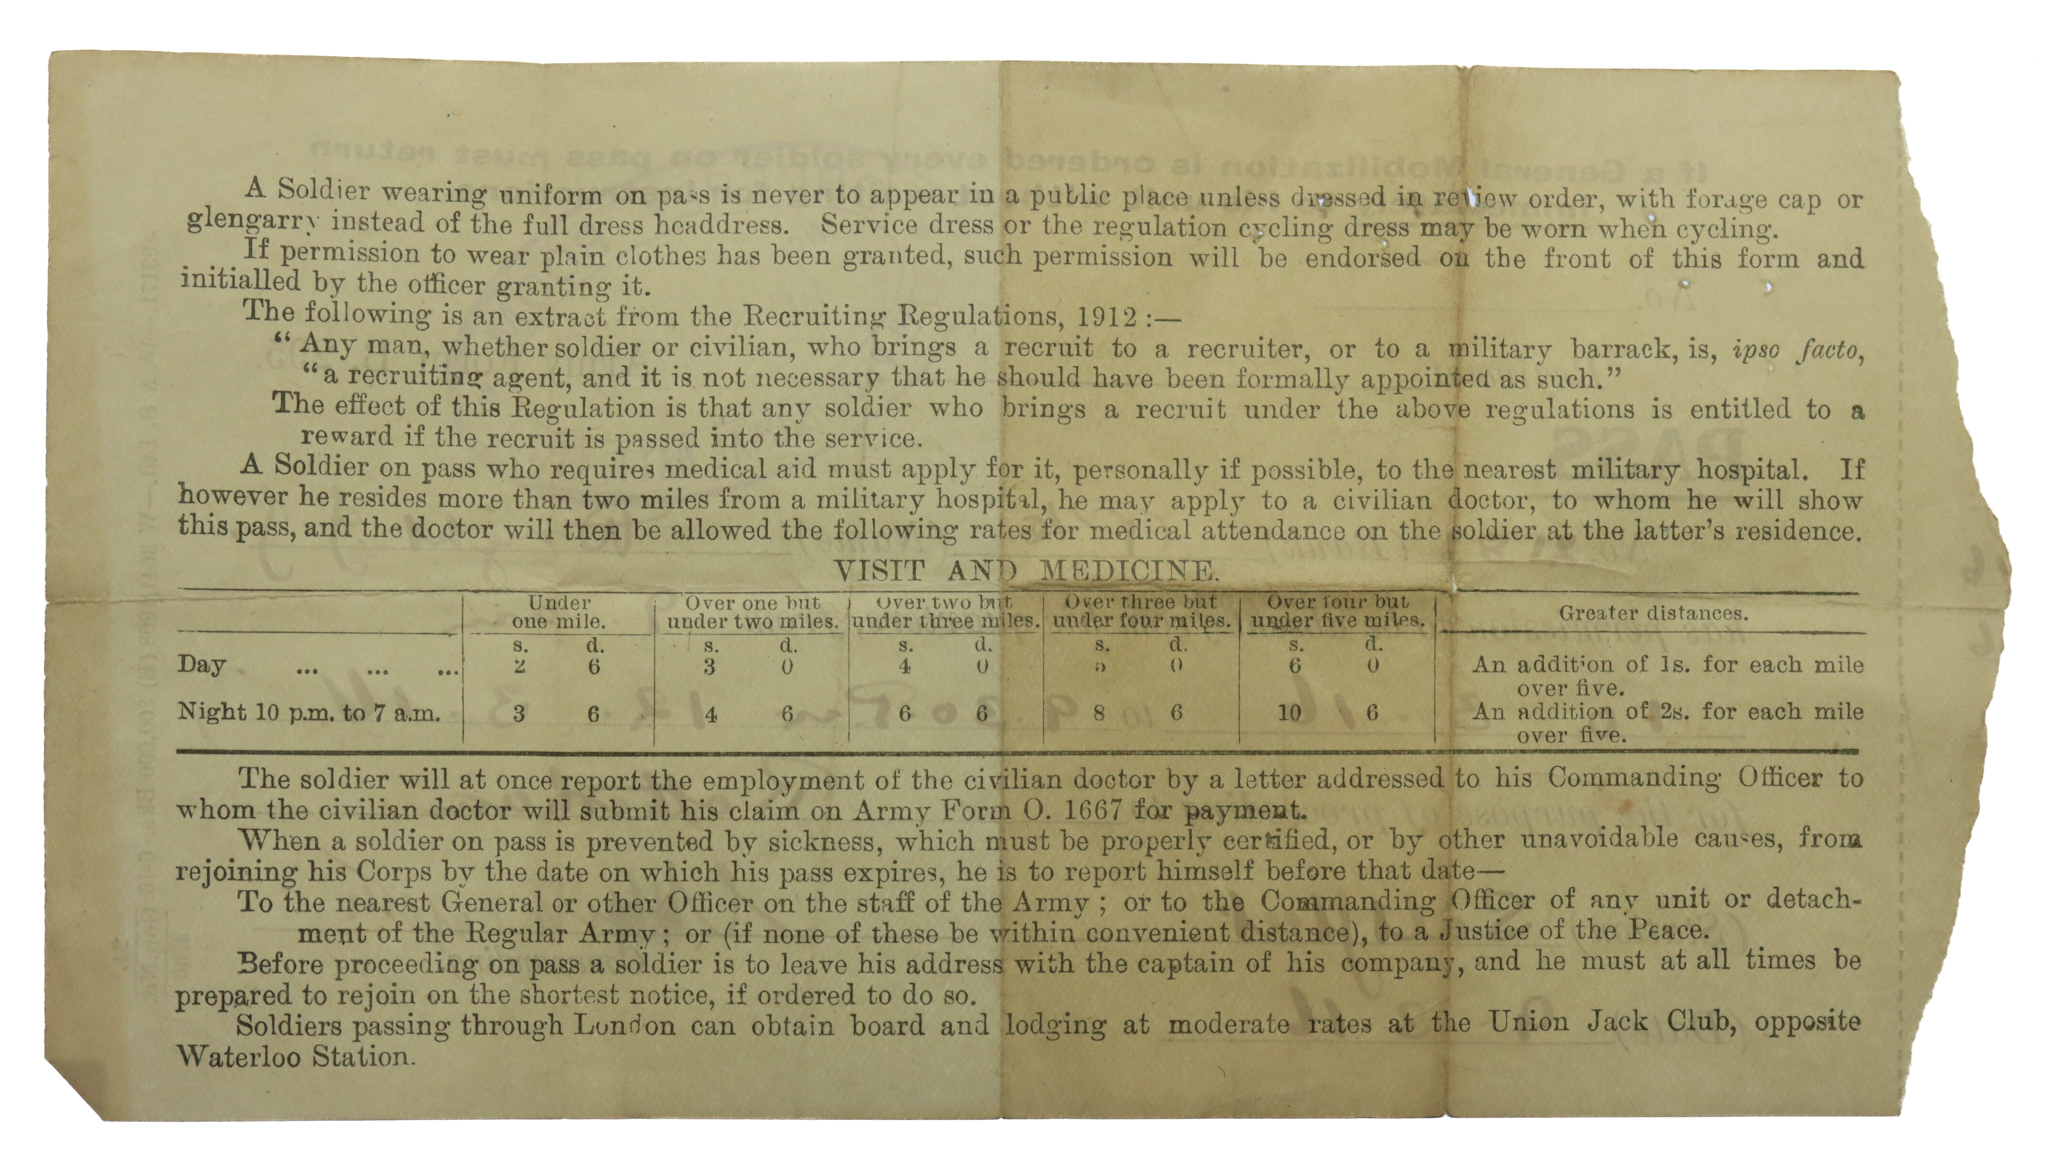 A Soldier wearing uniform on pass is never to appear in a public place unless dressed in review order, with forage cap or
glengarry instead of the full dress headdress. Service dress or the regulation cycling dress may be worn when cycling.
If permission to wear plain clothes has been granted, such permission will be endorsed on the front of this form and
initialled by the officer granting it.
The following is an extract from the Recruiting Regulations, 1912 :—
“ Any man, whether soldier or civilian, who brings a recruit to a recruiter, or to a military barrack, is, ipso facto,
“ a recruiting agent, and it is not necessary that he should have been formally appointed as such.”
The effect of this Regulation is that any soldier who brings a recruit under the above regulations is entitled to a
reward if the recruit is passed into the service.
A Soldier on pass who requires medical aid must apply for it, personally if possible, to the nearest military hospital. If
however he resides more than two miles from a military hospital, he may apply to a civilian doctor, to whom he will show
this pass, and the doctor will then be allowed the following rates for medical attendance on the soldier at the latter’s residence.
VISIT AND MEDICINE.
Under one mile. Over one but under two miles. Over two but under three miles. Over three but under four miles. Over four but under five miles. Greater distances.
s. d. s. d. s. d. s. d. s. d.
Day ... ... ... 2 6 3 0 4 0 5 0 6 0 An addition of 1s. for each mile
over five.
Night 10 p.m. to 7 a.m. 3 6 4 6 6 6 8 6 10 6 An addition of 2s. for each mile
over five.
The soldier will at once report the employment of the civilian doctor by a letter addressed to his Commanding Officer to
whom the civilian doctor will submit his claim on Army Form O. 1667 for payment.
When a soldier on pass is prevented by sickness, which must be properly certified, or by other unavoidable causes, from
rejoining his Corps by the date on which his pass expires, he is to report himself before that date—
To the nearest General or other Officer on the staff of the Army ; or to the Commanding Officer of any unit or detach-
ment of the Regular Army ; or (if none of these be within convenient distance), to a Justice of the Peace.
Before proceeding on pass a soldier is to leave his address with the captain of his company, and he must at all times be
prepared to rejoin on the shortest notice, if ordered to do so.
Soldiers passing through London can obtain board and lodging at moderate rates at the Union Jack Club, opposite
Waterloo Station.